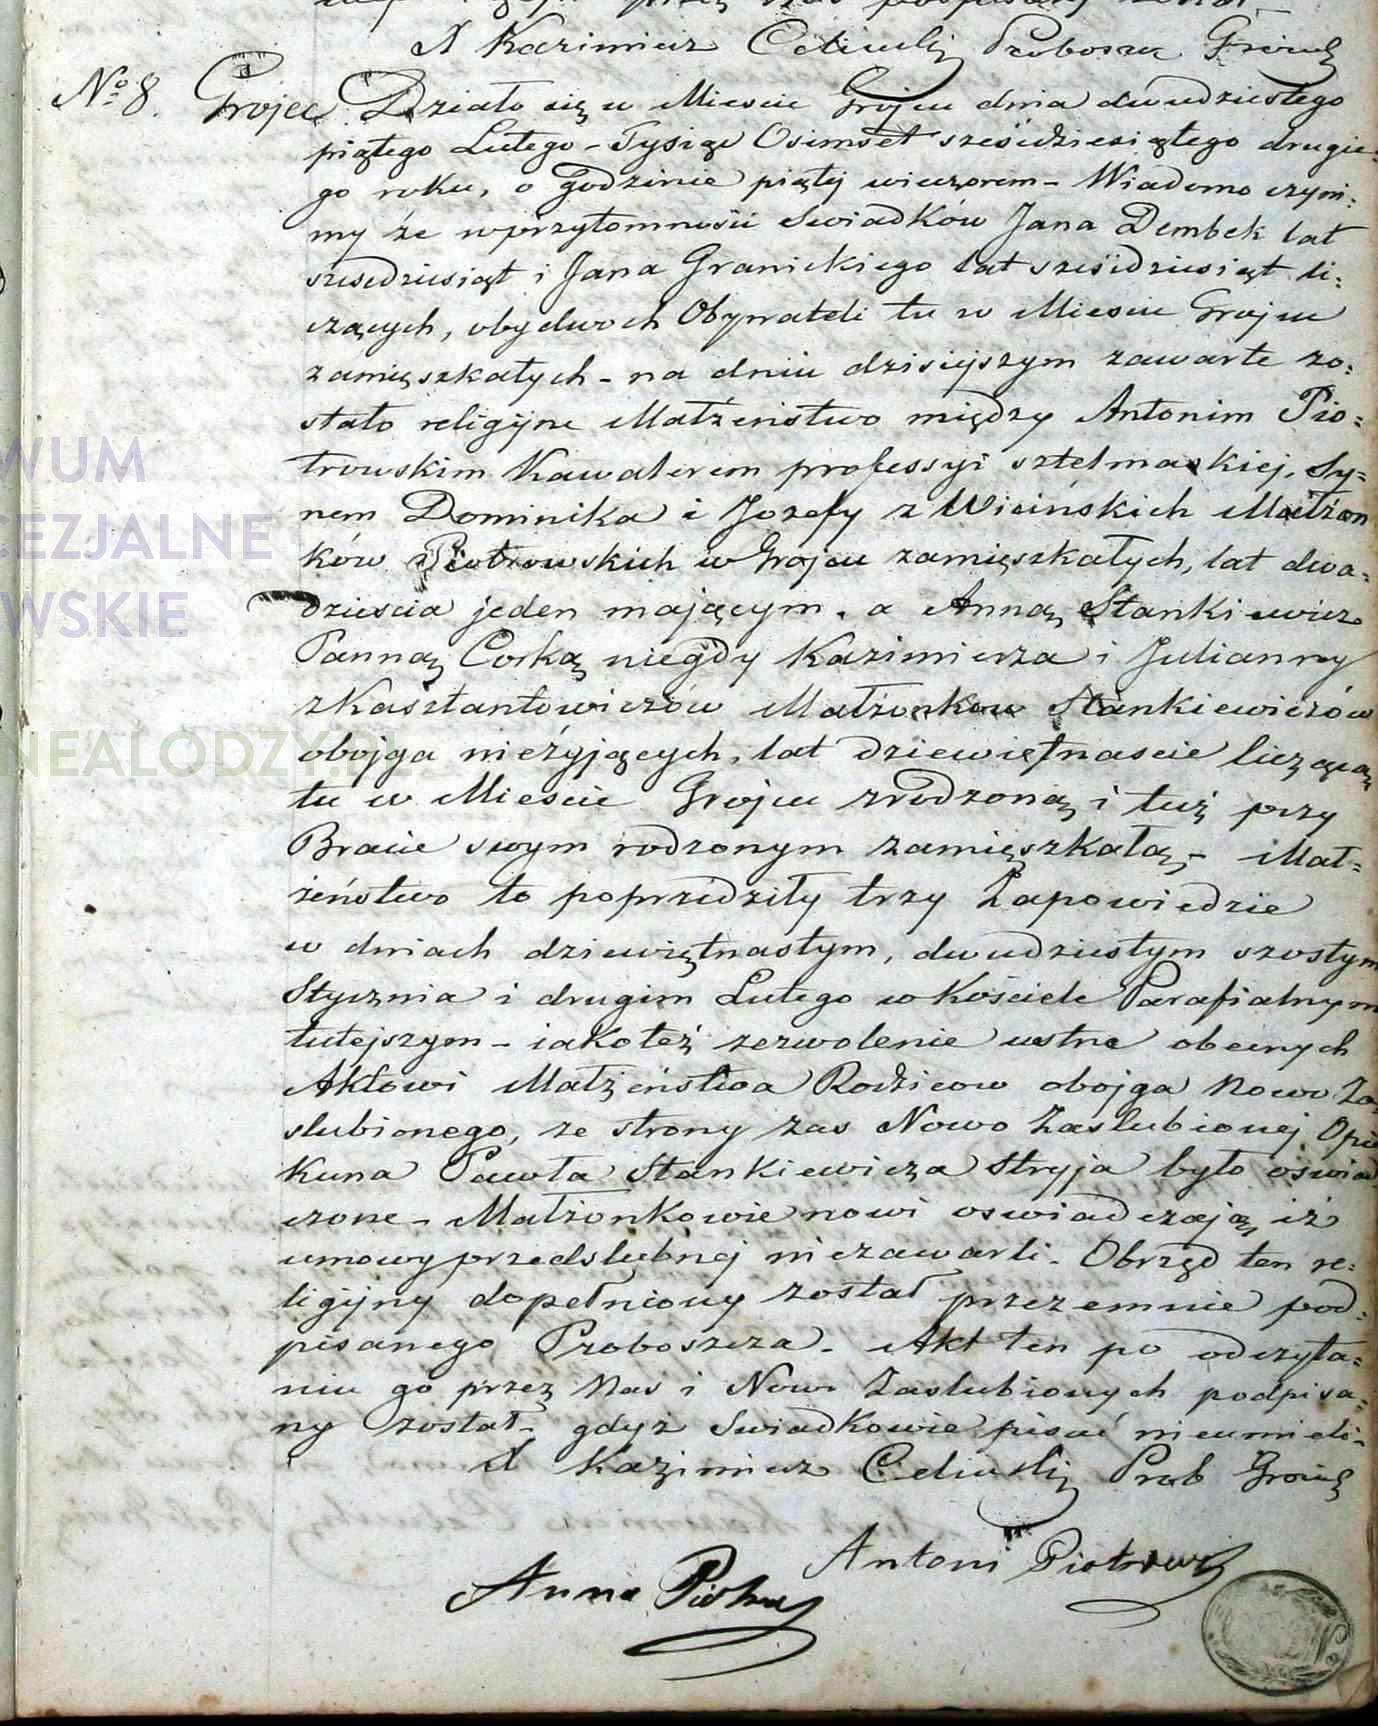 X Kazimierz Celiński Proboszcz Grójecki
№ 8. Grojec. Działo się w Miescie Grojcu dnia dwudziestego
piątego Lutego – Tysiąc Osimset sześcdziesiątego drugie:
go roku, o godzinie piątéj wieczorem – Wiadomo czyni:
my że wprzytomności Swiadków Jana Dembek lat
szesdziesiąt i Jana Granickiego lat sześćdziesiąt li:
czących, obydwoch Obywateli tu w Miescie Grojcu
zamięszkałych – na dniu dzisiejszym zawarte zo:
stało religijne Małżeństwo między Antonim Pio:
trowskim Kawalerem professyi sztelmaskiej, Sy:
nem Dominika i Jozefy z Wicińskich Małżon
ków Piotrowskich w Grojcu zamięszkałych, lat dwa:
dziescia jeden mającym, a Anną Stankiewicz
Panną Corką niegdy Kazimierza i Julianny
z Kasztantowiczów Małżonkow Stankiewiczów
obojga nieżyjących, lat dziewiętnascie liczącą
tu w Miescie Grojcu zrodzoną i tuż przy
Bracie swym rodzonym zamięszkałą – Mał:
żeństwo to poprzedziły trzy Zapowiedzie
w dniach dziewiętnastym, dwudziestym szostym
Stycznia i drugim Lutego w Kościele Parafialnym
tutejszym – iakoteż zezwolenie ustne obecnych
Aktowi Małżeństwa Rodzicow obojga Nowo Za
slubionego, ze strony zas Nowo Zaslubionej Opie
Kuna Pawła Stankiewicza Stryja było oswiad
czone – Małżonkowie nowi oswiadczają iż
umowy przedslubnej niezawarli – Obrzęd ten re:
ligijny dopełniony został przezemnie pod:
pisanego Proboszcza – Akt ten po odczyta:
niu go przez Nas i Nowo Zaslubionych podpisa:
ny został – gdyż Swiadkowie pisać nieumieli –
X Kazimierz Celiński Prob Grójecki
Antoni Piotrowski
Anna Piotrow
WUM
CEZJALNE
WSKIE
NEALODZY.PL